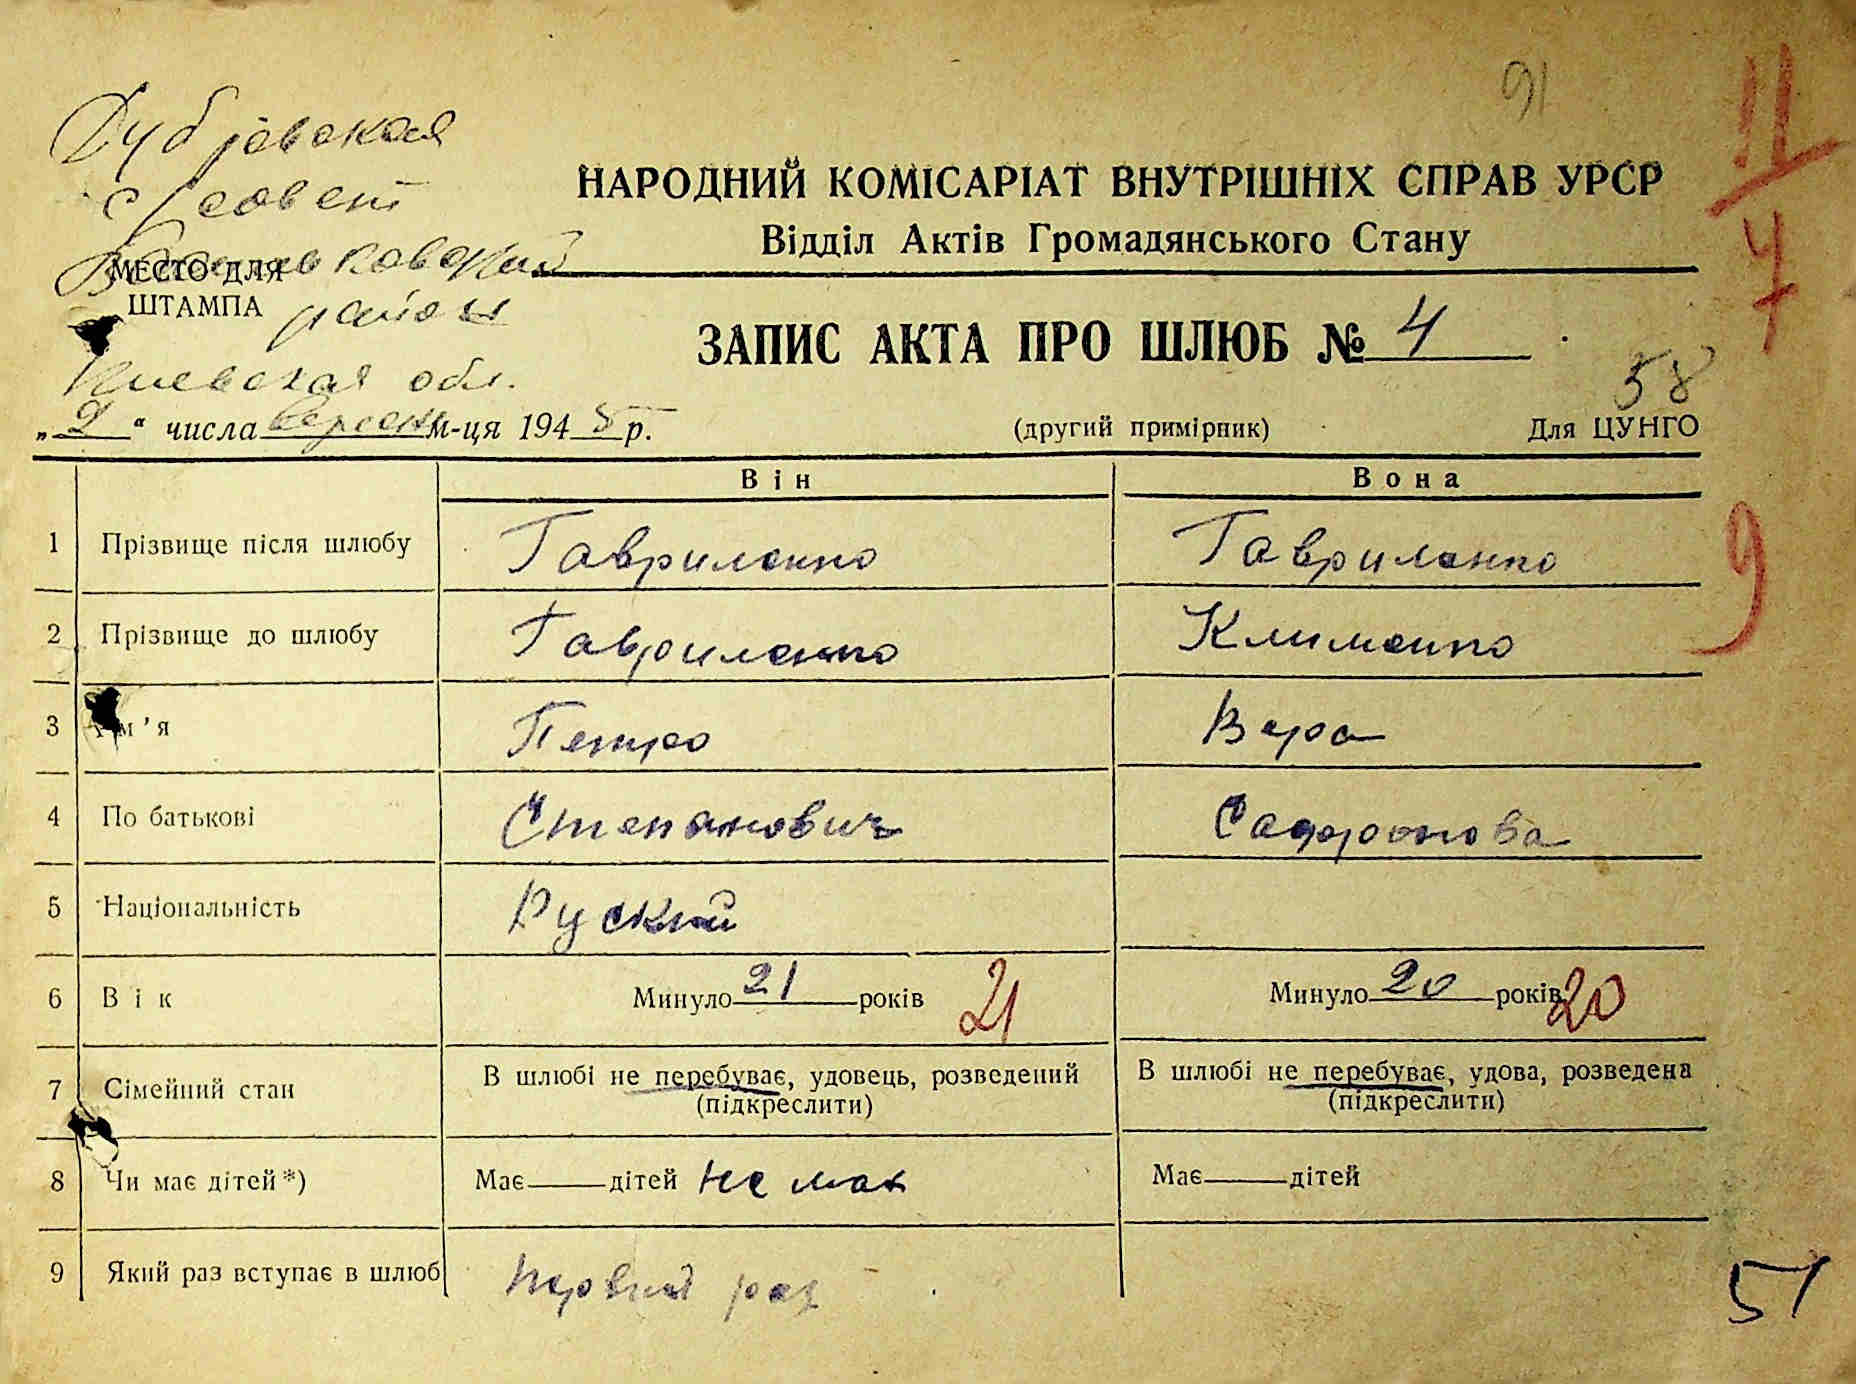 91
11
7
с/совет
район
Киевская обл.
МЕСТО ДЛЯ
ШТАМПА
НАРОДНИЙ КОМІСАРІАТ ВНУТРІШНІХ СПРАВ УРСР
Відділ Актів Громадянського Стану
ЗАПИС АКТА ПРО ШЛЮБ № 4
58
„ 2 “ числа вересня м-ця 1945 р.
(другий примірник)
Для ЦУНГО
Він Вона
1 Прізвище після шлюбу Гавриленко Гавриленко
9
2 Прізвище до шлюбу Гавриленко Клименко
3 Ім'я Петро Вера
4 По батькові Степанович Сафронова
5 Національність Руский
6 Вік Минуло 21 років 21 Минуло 20 років 20
7 Сімейний стан В шлюбі не перебуває, удовець, розведений В шлюбі не перебуває, удова, розведена
(підкреслити) (підкреслити)
8 Чи має дітей*) Має дітей не мая Має дітей
9 Який раз вступає в шлюб первий раз
51